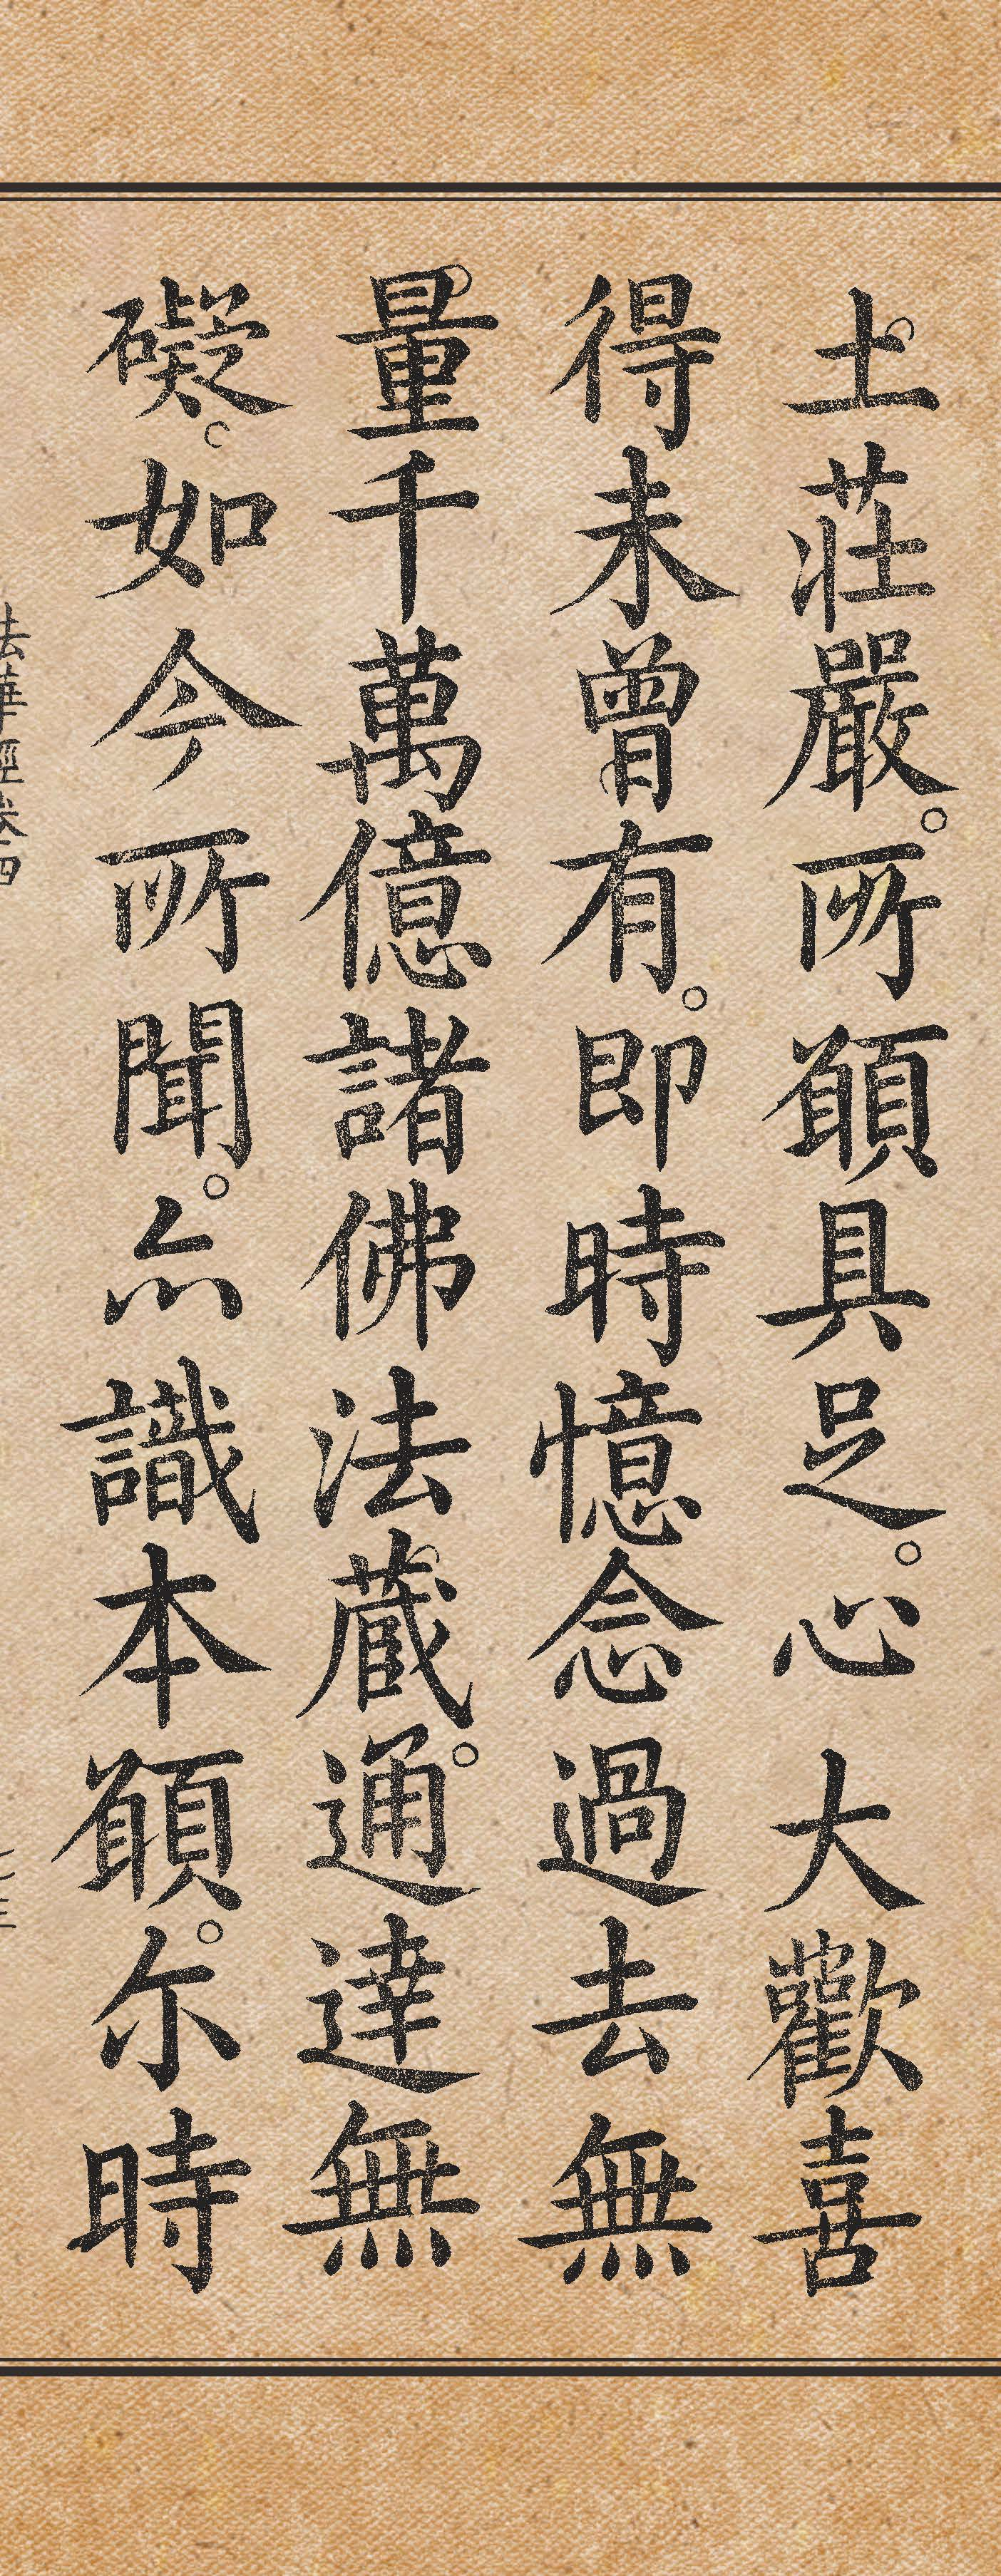 土莊嚴。所願具足。心大歡喜
得未曾有。即時憶念過去無
量千萬億諸佛法藏。通達無
礙。如今所聞。亦識本願。尔時
法華經卷四